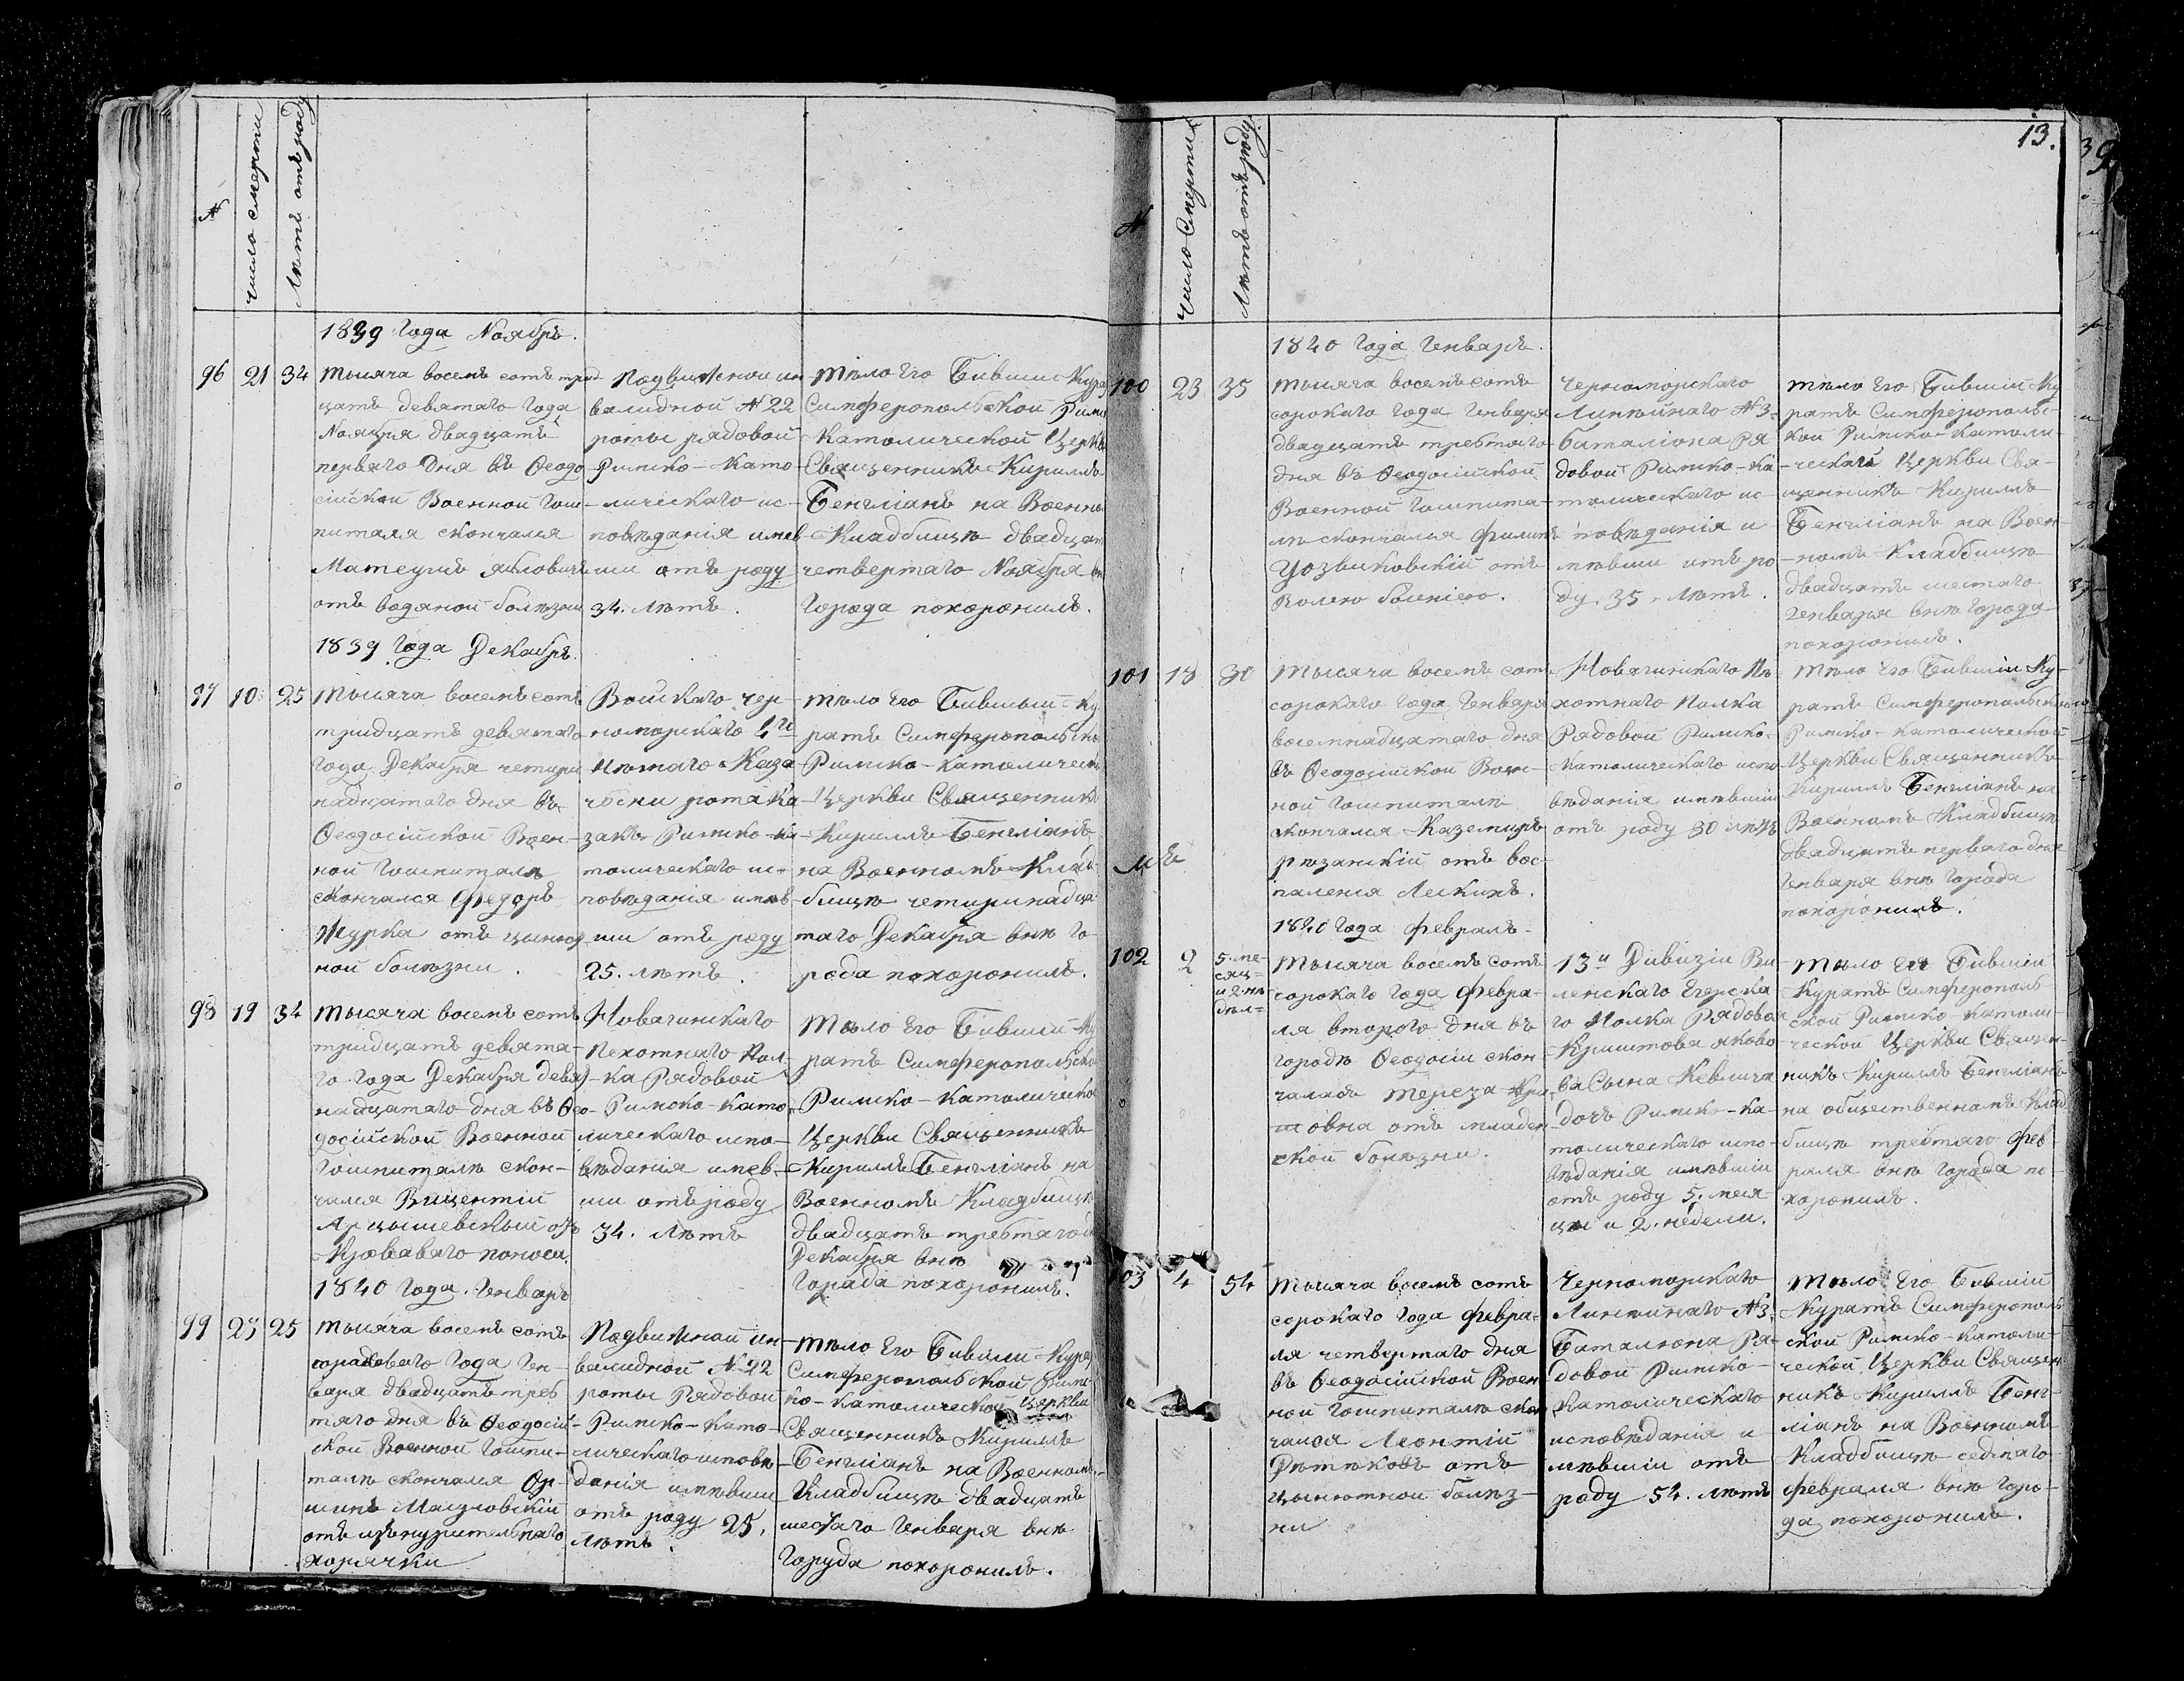 №
число смерти
Лѣтъ отъ роду
1839 Года Ноябрь.
96
21
34
Тысяча восемь сотъ трид
цать девятаго Года
Ноября двадцать
перваго дня въ Ѳеодо
сійской Военной Гош-
питаля скончался
Матеушъ
отъ водяной болѣзни
Подвижной ин
валидной № 22
роты рядовой
Римско-като-
лическаго ис-
повѣданія имев
ши отъ роду
34. лѣтъ.
Тѣло Его Бивши Кура
Симферопольской Римс
Католической Церкви
Священникъ Кириллъ
Бенгліанъ на Военно
Кладбищѣ двадцать
четвертаго Ноября внѣ
Города похоронилъ.
1839 года Декабрь.
97
10
25
Тысяча восемь сотъ
тридцать девятаго
Года Декабря четири
надцатаго дня въ
Ѳеодосійской Воен-
ной Гошпиталѣ
скончался Федоръ
Журка отъ цынгот
ной болѣзни.
Войскаго чер-
номорскаго 4го
пѣшаго Каза
чьски рота ка
закъ Римско-ка
толическаго ис-
повѣданія имѣв
ши отъ роду
25. лѣтъ.
Тѣло Его Бившый Ку
ратъ Симферопольско
Римско-Католическо
Церкви Священникъ
Кириллъ Бенгліанъ
на Военномъ Клад-
бищѣ четиринадца
таго Декабря внѣ го-
рода похоронилъ.
98
19
34
Тысяча восемь сотъ
тридцать девята-
го Года Декабря девят
надцатаго дня въ Ѳео-
досійской Военной
Гошпиталѣ скон-
чался Вицентій
Арцышевскый отъ
Кроваваго поноса.
Новагинскаго
Пехотнаго Пол-
ка Рядовой
Римско-като
лическаго испо-
вѣданія имев-
ши отъ роду
34. лѣтъ
Тѣло Его Бившій Ку
ратъ Симферопольско
Римско-Католическо
Церкви Священникъ
Кириллъ Бенгліанъ на
Военномъ Кладбищѣ
двадцать третяго дн
Декабря внѣ
Города похоронилъ.
1840 Года. Генварь
99
23
25
Тысяча восемь сотъ
сороковаго Года Ген-
варя двадцать треь
тяго дня въ Ѳеодосій
ской Военной Гошпи-
талѣ скончался
отъ изънурительнаго
хорячки
Подвижной ин
валидной № 22
роты Рядовой
Римско-като-
лическаго исповѣ
данія имѣвши
отъ роду 25.
лѣтъ.
Тѣло Его Бившій Кура
Симферопольской Римс
ко-католической Церкви
Священникъ Кириллъ
Бенгліанъ на Военномъ
Кладбищѣ двадцать
шестаго Генваря внѣ
Города похоронилъ.
13.
№
Число Смерти
Лѣтъ отъ роду
1840 Года Генварь.
100
23
35
Тысяча восемь сотъ
сорокаго Года Генваря
двадцать третьтаго
дня въ Ѳеодосійской
Военной Гошпита-
лѣ скончался Филипъ
отъ
Черноморскаго
Линейнаго № 3.
баталіона Ря
довой Римско-ка
толическаго ис-
повѣданія и
мѣвши отъ ро
ду. 35. лѣтъ.
Тѣло Его Бившій Ку
ратъ Симферополь-
кой Римско-католи-
ческага Церкви Свя-
щенникъ Кириллъ
Бенгліанъ на Воен-
номъ Кладбищѣ
двадцать шестаго
Генваря внѣ Города
похоронилъ.
101
18
30
Тысяча восемь сотъ
сорокаго Года Генваря
восемнадцатаго дня
въ Ѳеодосійской Воен-
ной Гошпиталѣ
скончался Каземиръ
Рязанскій отъ вос-
паленія Легкихъ.
Новагинскаго Пѣ
хотнаго Полка
Рядовой Римско-
Католическаго испо
вѣданія имѣвши
отъ роду 30 лѣтъ
Тѣло Его Бившій Ку-
ратъ Симферопольской
Римско-католической
Церкви Священникъ
Кириллъ Бенгліанъ на
Военномъ Кладбищѣ
двадцать перваго дня
Генваря внѣ Города
похоронилъ.
1840 Года Февраль-
102
2
5. ме-
сяц-
и 2. не
дѣл-
Тысяча восемь сотъ
сорокаго Года Февра-
ля второго дня въ
Городѣ Ѳеодосіи скон-
чалась Тереза Кри-
штовна отъ младен
ской болѣзни.
13й Дивизіи Ви
ленскаго Егерска
го Полка Рядова
Криштова Яково
ва Сына Кевлича
дочь Римско-ка-
толическаго испо-
вѣданія имѣвши
отъ роду 5. меся
ци и 2. недели.
Тѣло Ея Бившій
Куратъ Симферополь
ской Римско-католи-
ческой Церкви Священ-
никъ Кириллъ Бенгліанъ
на общественномъ клад
бищѣ третьяго фев-
раля внѣ Города по-
хоронилъ.
103
4
54
Тысяча восемь сотъ
сорокаго Года Февра-
ля четвертаго дня
въ Ѳеодосійской Воен
ной Гошпиталѣ скон
чался Леонтій
отъ
Цынготной болѣз-
ни
Черноморскаго
Линейнаго № 3.
Баталіона Ря-
довой Римско-
Католическаго
исповѣданія и
мѣвшій отъ
роду 54. лѣтъ
Тѣло Его Бившій
Куратъ Симферополь
ской Римско-католи-
ческой Церкви Священ
никъ Кириллъ Бенг-
ліанъ на Военномъ
Кладбищѣ седмаго
Февраля внѣ Горо-
да похоронилъ.